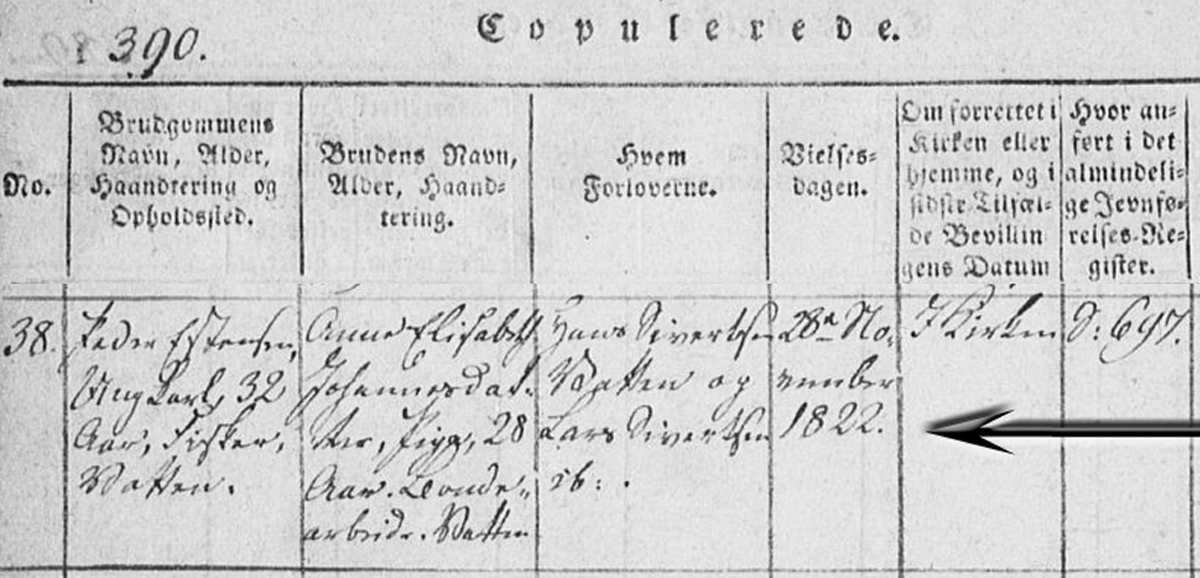 390.
Copulerede.
No.
Brudgommens
Navn, Alder,
Haandtering og
Opholdssted.
Brudens Navn,
Alder, Haand=
tering.
Hvem
Forloverne.
Vielses=
dagen.
Om forrettet i
Kirken eller
hjemme, og i
sidste Tilfæl=
de Bevillin
gens Datum
Hvor an=
ført i det
almindeli=
ge Jevnfø=
relses-Re=
gister.
38.
Peder Estensen,
Ung Karl, 32
Aar, Fisker,
Vatten.
Anne Elisabeth
Johannesdat=
ter, Pige, 28
Aar. Bonde=
arbeide. Vatten
Hans Sivertsen
Vatten og
Lars Sivertsen
ib:
28de No=
vember
1822.
I Kirken
S: 697.